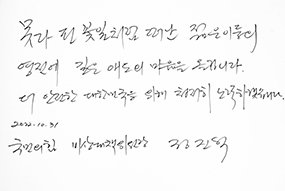 못다 핀 꽃잎처럼 떠난 젊은이들의
영전에 깊은 애도의 마음을 올립니다.
더 안전한 대한민국을 위해 처절히 노력하겠습니다.
2022.10.31
국민의힘 비상대책위원장 정진석